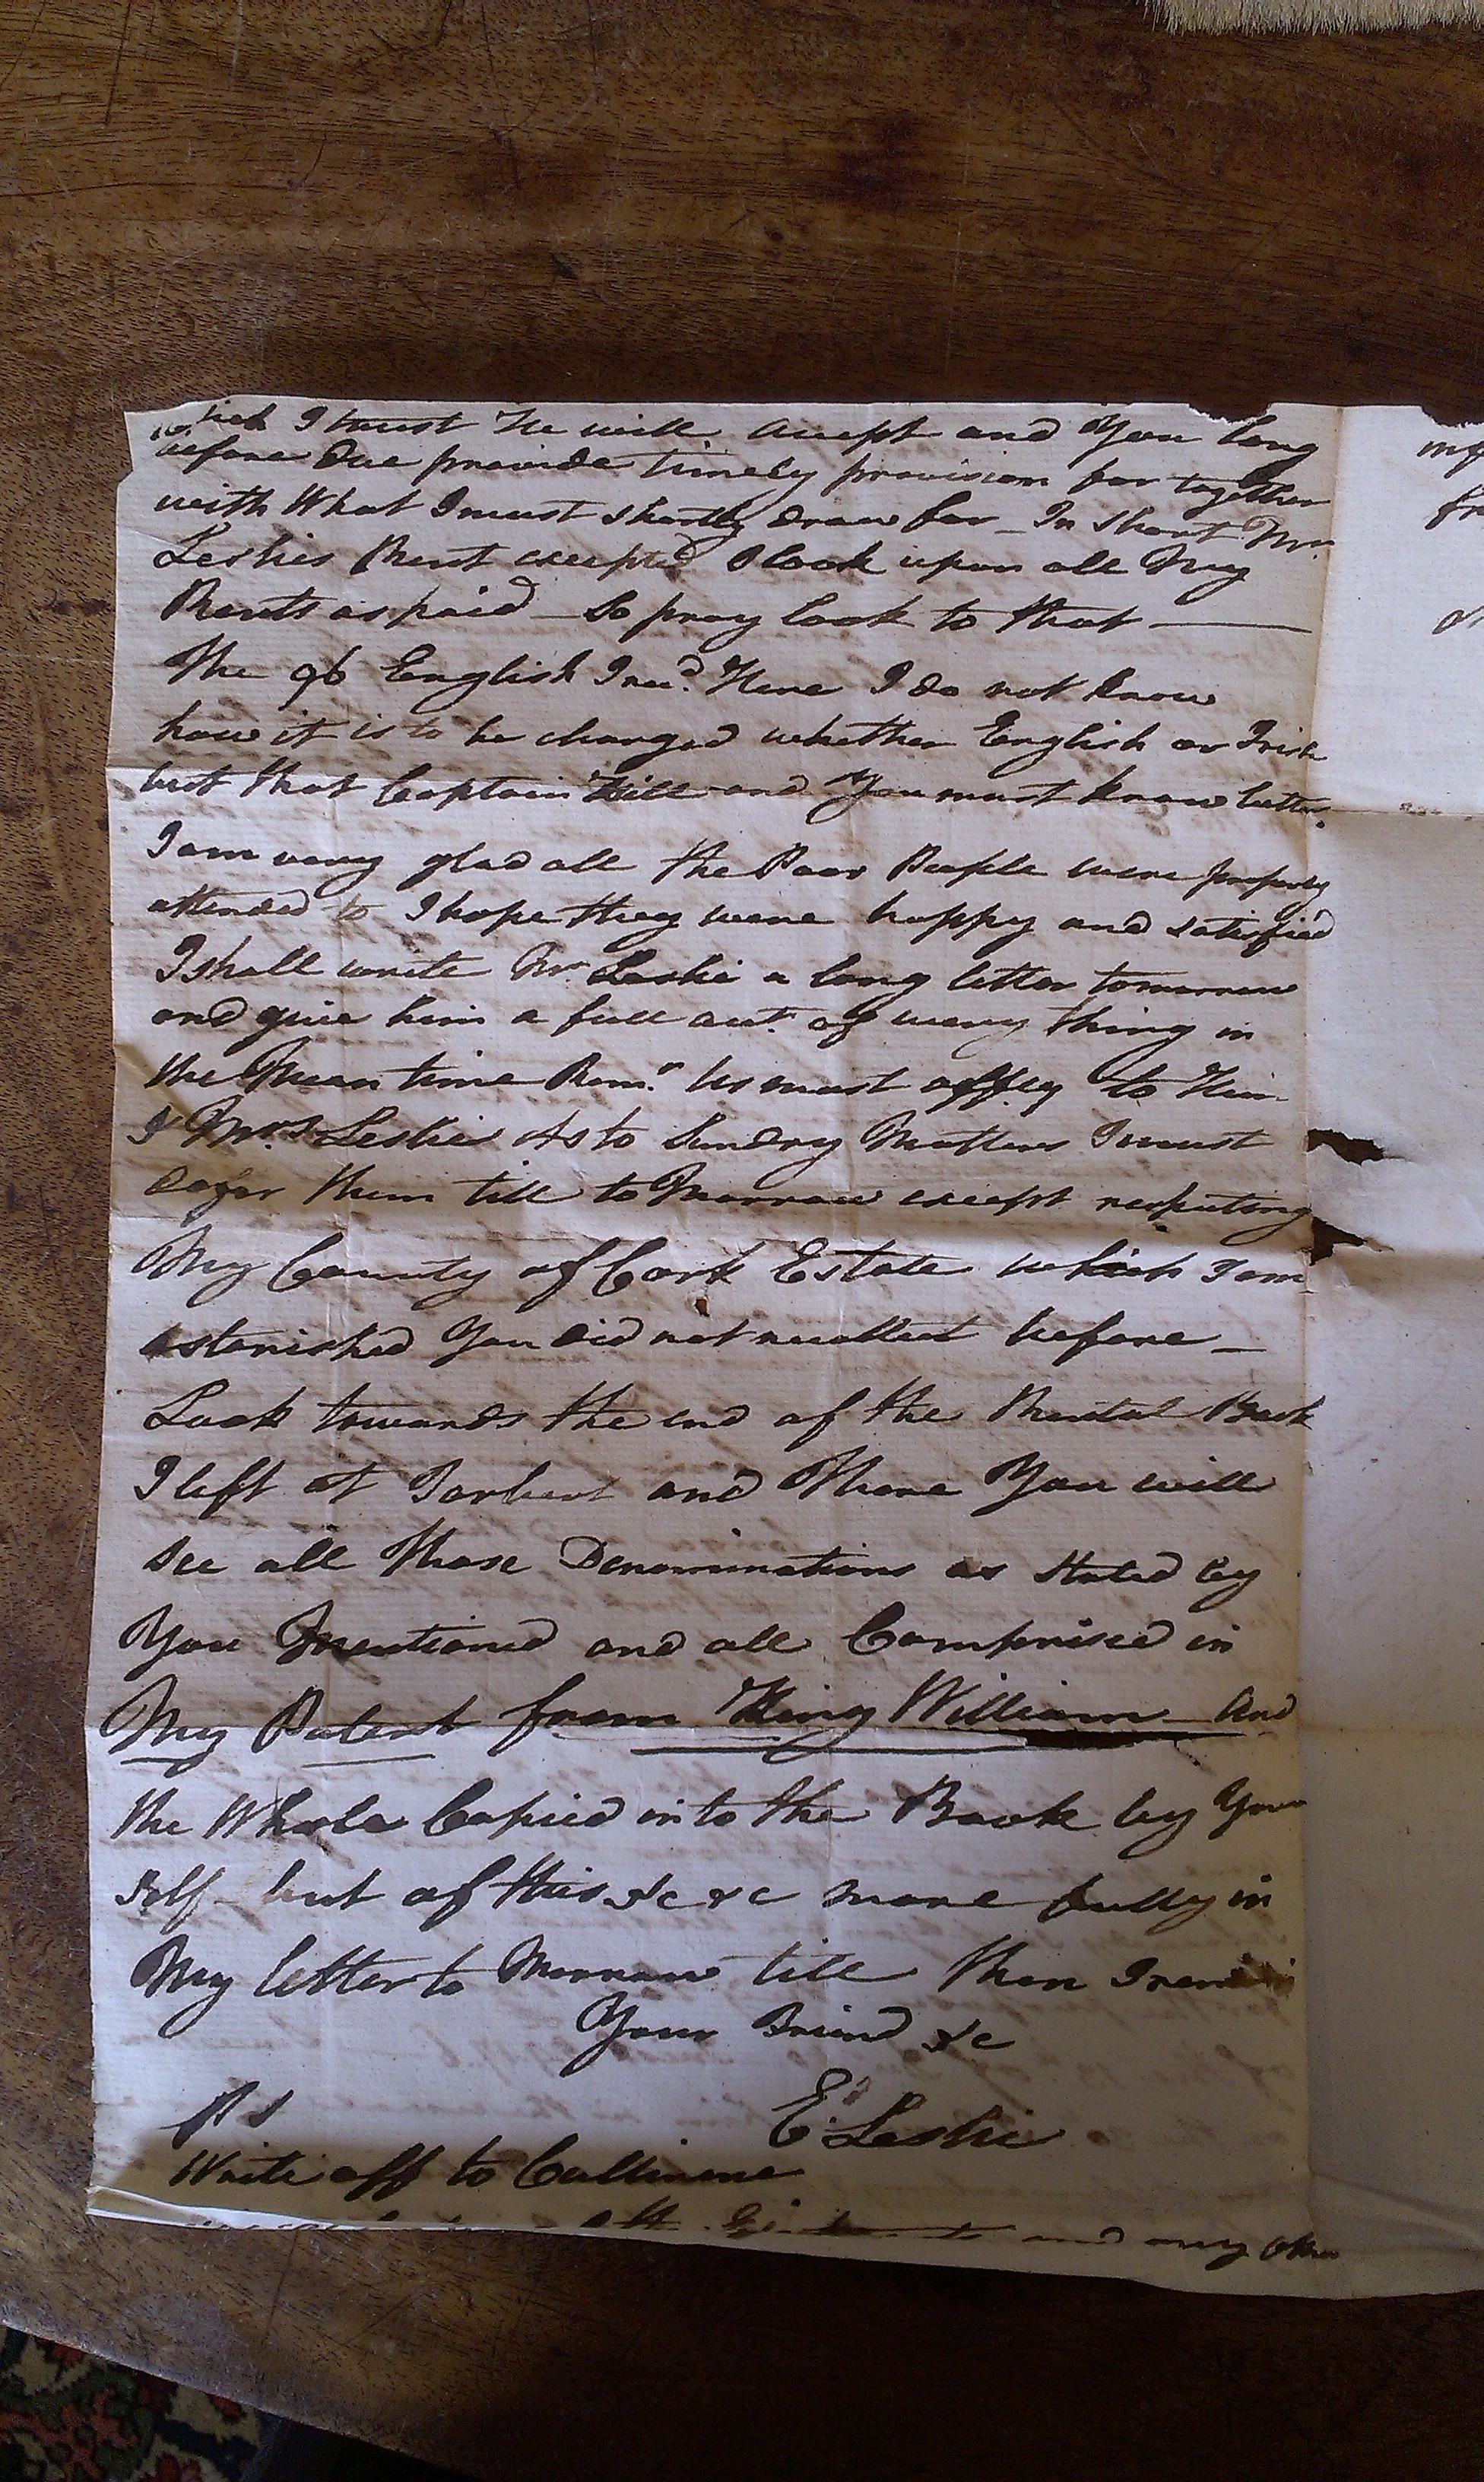 which I trust He will accept and You long
before Due provide timely provision for together
with What I must shortly draw for _ In short Mr
Leslies Rent excepted I look upon all My
Rents as paid _ So pray look to that ___
The 96 English I recd. Here I do not know
how it is to be charged whether English or Irish
but that Captain Hill and You must know better.
I am very glad all the Poor People were properly
attended to I hope they were happy and satisfied
I shall write Mr. Leslie a long letter tomorrow
and give him a full act. of every thing in
the Mean time Rem.r Us most affly to Him
& Mrs. Leslie As to Sundry Matters I must
defer them till to Morrow except respecting
My County of Cork Estate which I am
astonished You did not recollect before _
Look towards the end of the Rental Book
I left at Tarbert and There You will
see all those Denominations as stated by
You Mentioned and all Comprised in
My Patent from King William _ And
the Whole Copied into the Book by Your
self _ but of this &c &c more fully in
My letter to Morrow till then I remain
Your Friend &c
E. Leslie
P S
Write off to Cullinane
and any other